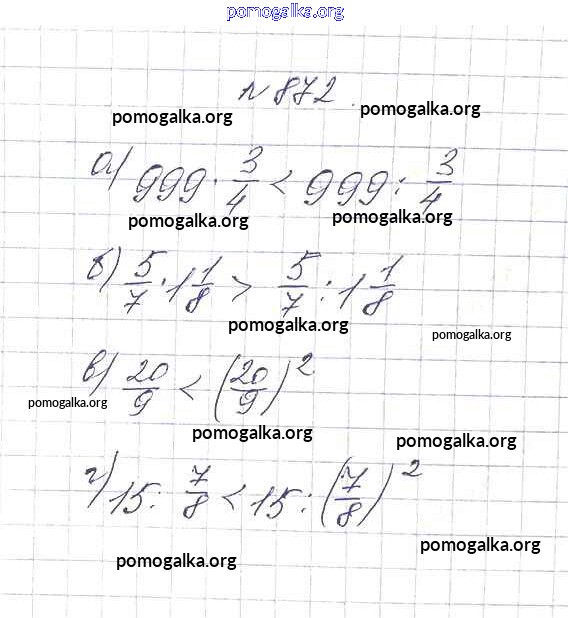 pomogalka.org
№ 872
pomogalka.org pomogalka.org
а) 999 · 3/4 < 999 : 3/4
pomogalka.org pomogalka.org
б) 5/7 · 1 1/8 > 5/7 : 1 1/8
pomogalka.org pomogalka.org
в) 20/9 < (20/9)²
pomogalka.org
pomogalka.org pomogalka.org
г) 15 : 7/8 < 15 : (7/8)²
pomogalka.org pomogalka.org